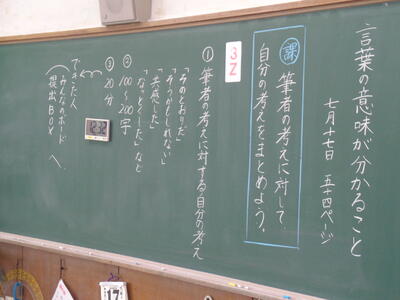 言葉の意味が分かること
七月十七日 五十四ページ
課 筆者の考えに対して
自分の考えをまとめよう。
①筆者の考えに対する自分の考え
「そのとおりだ」
「そうかもしれない」
「共感した」
「なっとくした」など
②100~200字
③20分
できた人
みんなのボード
提出BOXへ
17